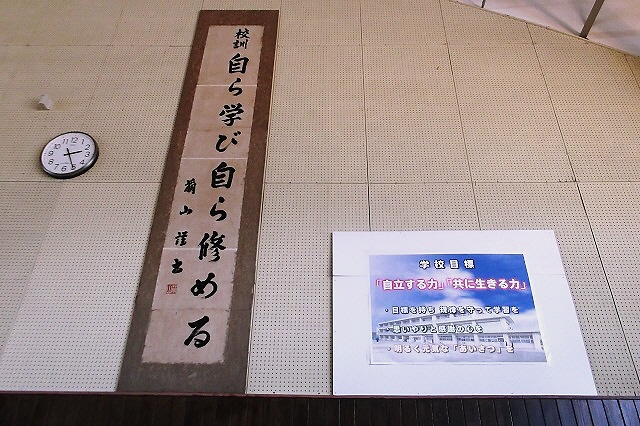 校訓
自ら学び自ら修める
学校目標
「自立する力」「共に生きる力」
・目標を持ち 規律を守って学習を
・思いやりと感謝の心を
・明るく元気な「あいさつ」を
12
1
2
3
4
5
6
7
8
9
10
11